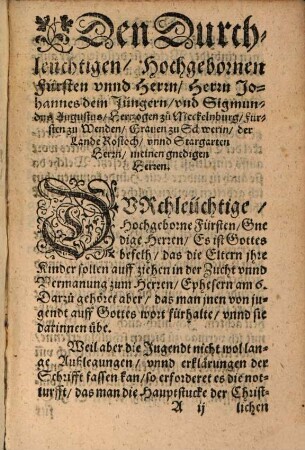 Den Durch-
leuchtigen/ Hochgebornen
Fürsten vnnd Herrn/ Herrn Jo-
hannes dem Jüngern/ vnd Sigmun-
dus Augustus/ Hertzogen zü Meckelnburg/ Für-
sten zu Wenden/ Grauen zu Schwerin/ der
Lande Rostoch/ vnnd Stargarten
Herrn/ meinen gnedigen
Herren.
DVRchleüchtige/
Hochgeborne Fürsten/ Gne
dige Herren/ Es ist Gottes
befelh/ das die Eltern jhre
Kinder sollen auff ziehen in der Zucht vnnd
Vermanung zum Herren/ Ephesern am 6.
Darzü gehöret aber/ das man jnen von ju-
gendt auff Gottes wort fürhalte/ vnnd sie
darinnen übe.
Weil aber die Jugendt nicht wol lan-
ge Außlegungen/ vnnd erklärungen der
Schrifft fassen kan/ so erforderet es die not-
turfft/ das man die Hauptstucke der Christ-
A ij lichen